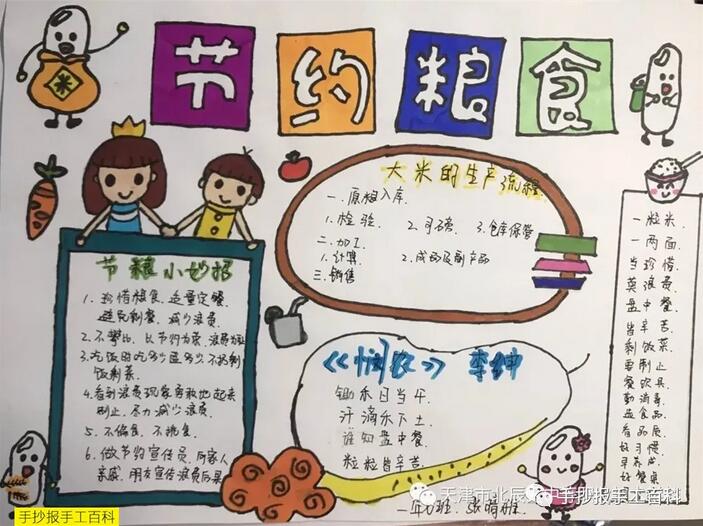 节约粮食
米
大米的生产流程
一.原粮入库
1.检验 2.司磅 3.仓库保管
二.加工
1.计算 2.成品及副产品
三.销售
节粮小妙招
1.珍惜粮食.适量定餐
避免剩餐.减少浪费
2.不攀比.以节约为荣.浪费为耻
3.吃饭时吃多少盛多少不扔剩
饭剩菜
4.看到浪费现象勇敢地起来
制止.尽力减少浪费
5.不偏食.不挑食
6.做节约宣传员.向家人
亲戚.朋友宣传浪费后果
《悯农》 李绅
锄禾日当午
汗滴禾下土
谁知盘中餐
粒粒皆辛苦
一粒米.
一两面.
当珍惜
莫浪费
盘中餐
皆辛苦.
剩饭菜
要制止
餐饮具
勤消毒
选食品
看品质.
好习惯
早养成
好餐桌
一年 班
天津市北辰
手抄报手工百科
手抄报手工百科